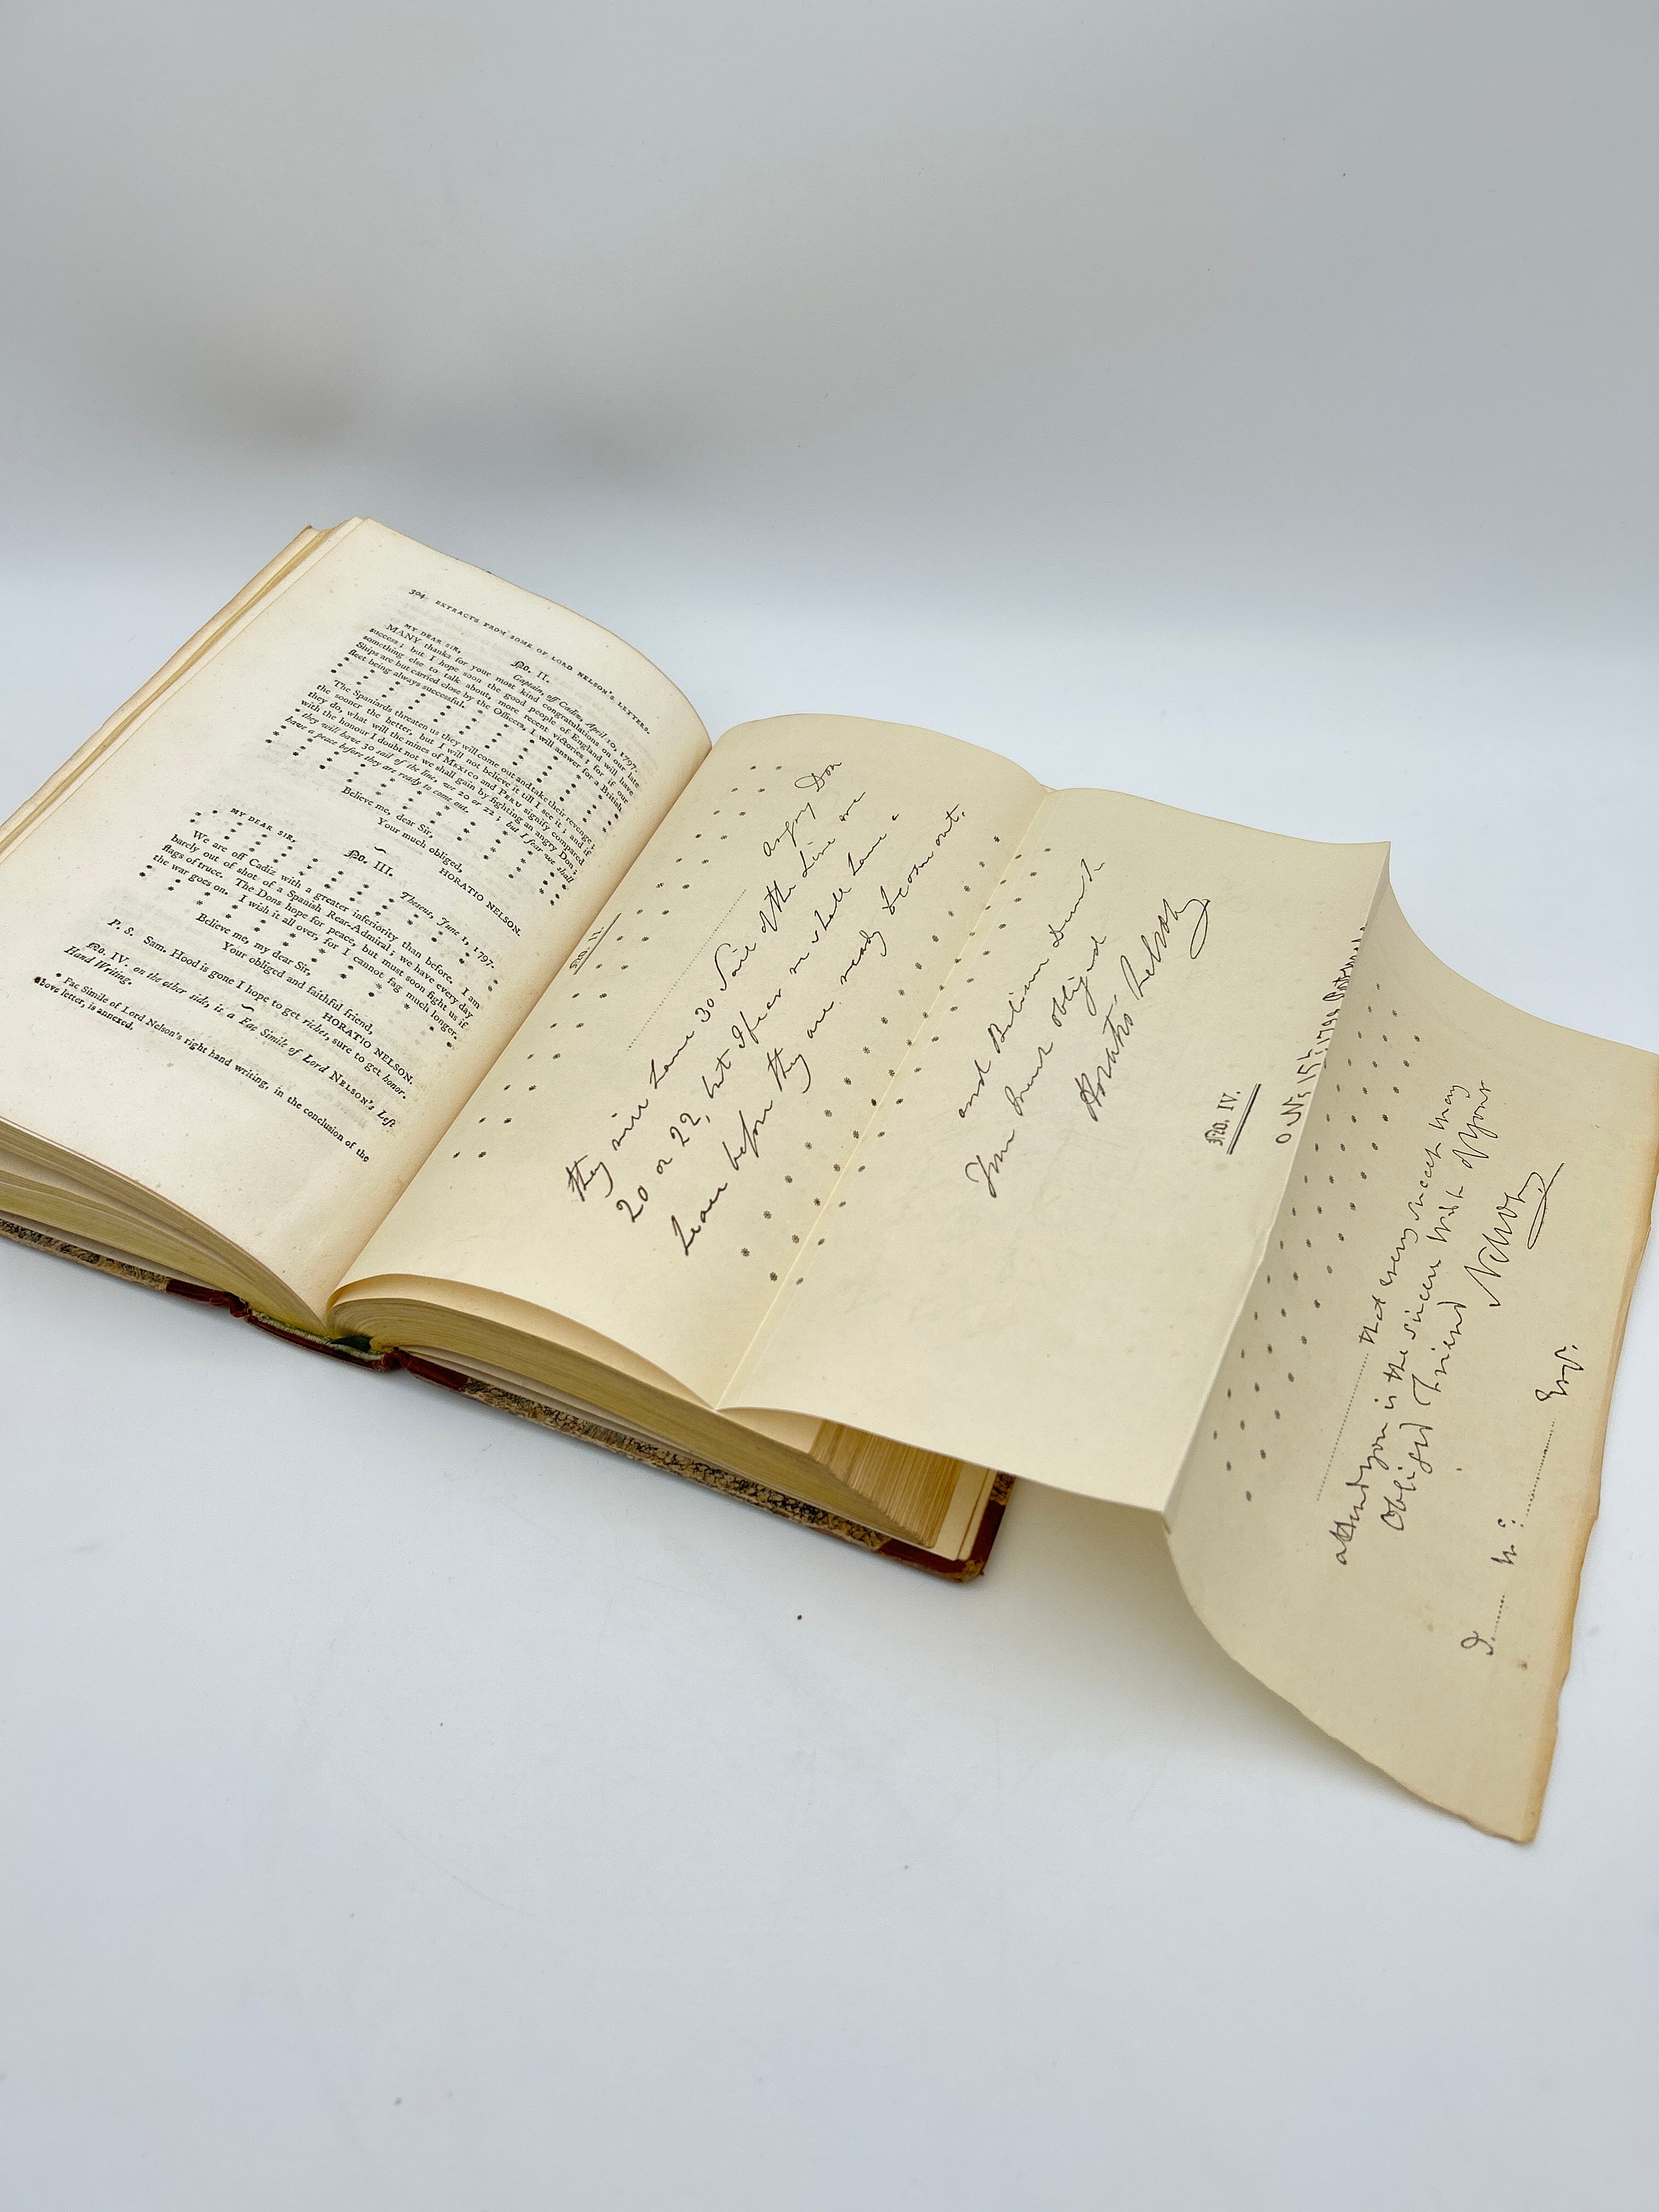 304 EXTRACTS FROM SOME OF LORD NELSON'S LETTERS.
No. II.
MY DEAR SIR, Captain, off Cadiz, April 10, 1797.
MANY thanks for your most kind congratulations on our late
success; but I hope soon the good people of England will have
something else to talk about, more recent victories; for if our
Ships are but carried close by the Officers, I will answer for a British
fleet being always successful.
The Spaniards threaten us they will come out and take their revenge;
the sooner the better, but I will not believe it till I see it; and if
they do, what will the mines of MEXICO and PERU signify compared
with the honour I doubt not we shall gain by fighting an angry Don;
* they will have 30 sail of the line, we 20 or 22; but I fear we shall
have a peace before they are ready to come out.
Believe me, dear Sir,
Your much obliged,
HORATIO NELSON.
No. III.
MY DEAR SIR, Theseus, June 1, 1797.
We are off Cadiz with a greater inferiority than before. I am
barely out of shot of a Spanish Rear-Admiral; we have every day
flags of truce. The Dons hope for peace, but must soon fight us if
the war goes on. I wish it all over, for I cannot fag much longer.
Believe me, my dear Sir,
Your obliged and faithful friend,
HORATIO NELSON.
P. S. Sam. Hood is gone I hope to get riches, sure to get honor.
No. IV. on the other side, is a Fac Simile of Lord NELSON's Left
Hand Writing.
* Fac Simile of Lord Nelson's right hand writing, in the conclusion of the
above letter, is annexed.
No. II.
angry Don
they will have 30 Sail of the Line we
20 or 22, but I fear we shall have a
peace before they are ready to come out.
and Believe Dear Sir
Your much obliged
Horatio Nelson
No. IV.
that every success may
attend you is the sincere wish of your
Obliged Friend
Nelson
Esqr.